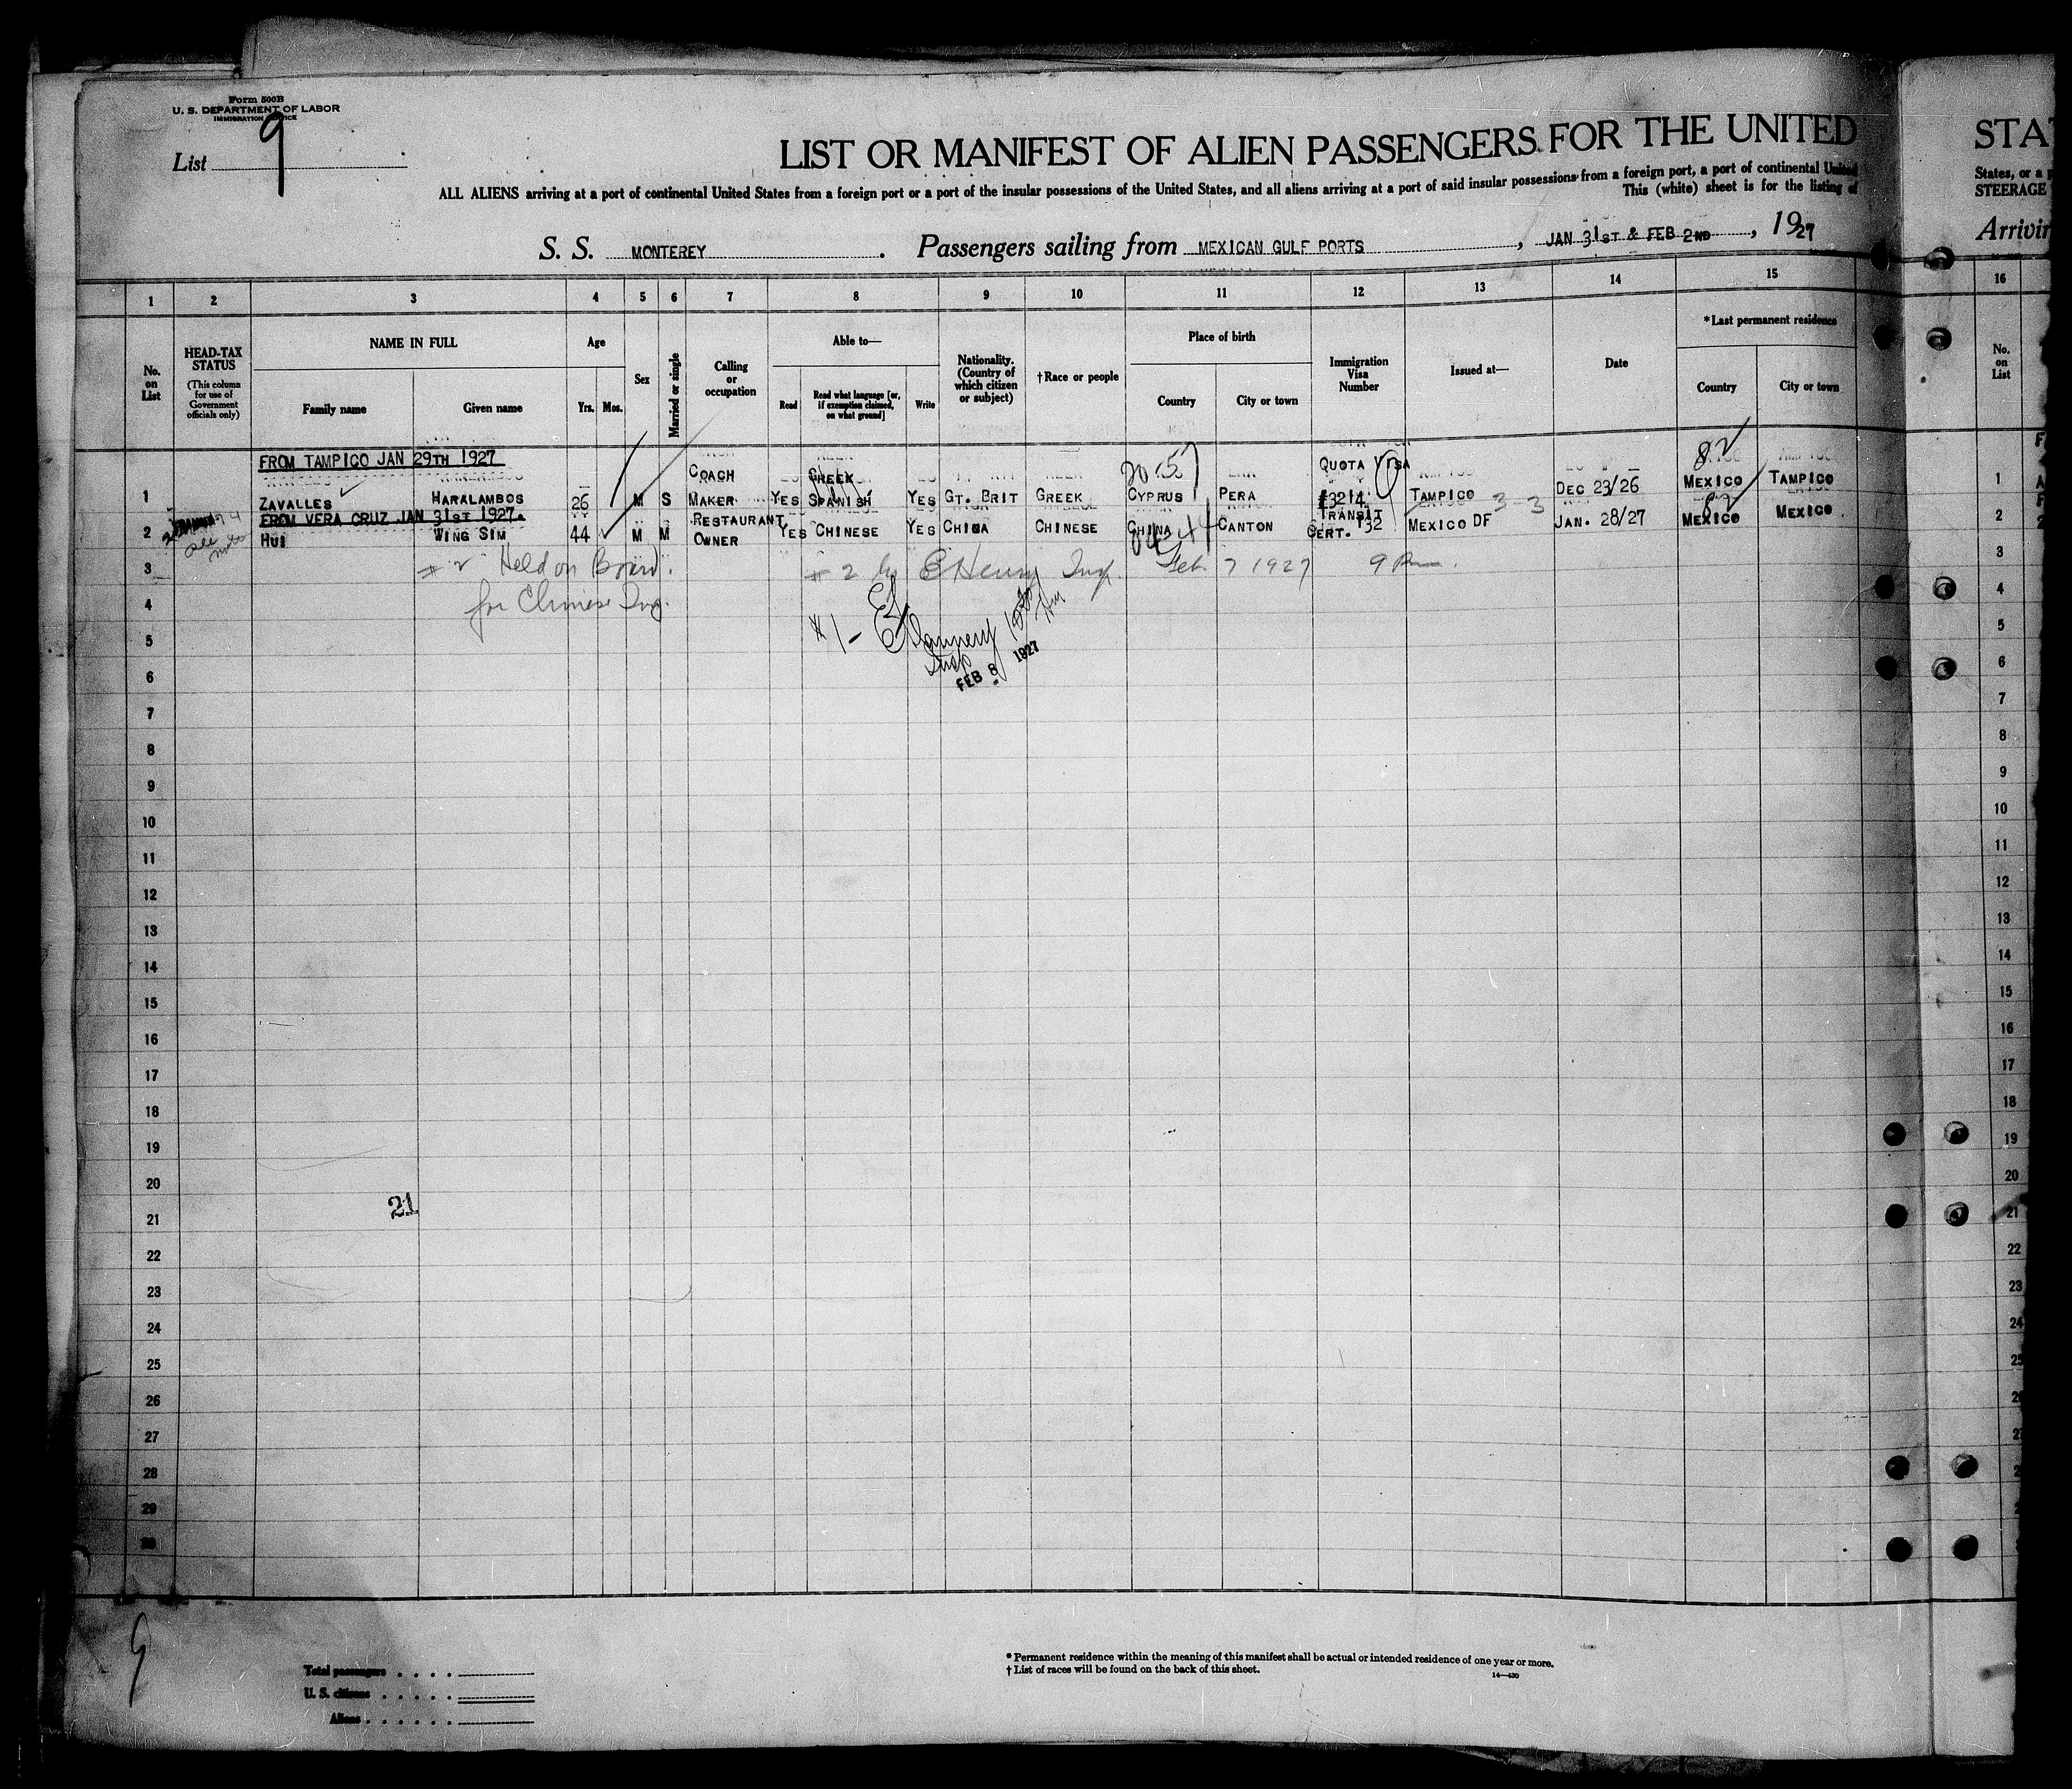 Form 500B
U. S. DEPARTMENT OF LABOR
IMMIGRATION SERVICE
List 9
LIST OR MANIFEST OF ALIEN PASSENGERS FOR THE UNITED
STAT
ALL ALIENS arriving at a port of continental United States from a foreign port or a port of the insular possessions of the United States, and all aliens arriving at a port of said insular possessions from a foreign port, a port of continental United
States, or a p
This (white) sheet is for the listing of
STEERAGE
S. S. MONTEREY. Passengers sailing from MEXICAN GULF PORTS, JAN 31ST & FEB 2ND, 1927
Arrivin
1 2 3 4 5 6 7 8 9 10 11 12 13 14 15 16
No. on List
HEAD-TAX STATUS
(This column for use of Government officials only)
NAME IN FULL
Family name
Given name
Age
Yrs. Mos.
Sex
Married or single
Calling or occupation
Able to—
Read
Read what language [or, if exemption claimed, on what ground]
Write
Nationality. (Country of which citizen or subject)
†Race or people
Place of birth
Country
City or town
Immigration Visa Number
Issued at—
Date
*Last permanent residence
Country
City or town
No. on List
FROM TAMPICO JAN 29TH 1927
1 ZAVALLES HARALAMBOS 26 M S COACH MAKER YES GREEK SPANISH YES GT. BRIT GREEK CYPRUS PERA QUOTA VISA #3214 TAMPICO 3-3 DEC 23/26 82 MEXICO TAMPICO 1
FROM VERA CRUZ JAN 31ST 1927.
2 HUI WING SIM 44 M M RESTAURANT OWNER YES CHINESE YES CHINA CHINESE CHINA CANTON TRANSIT CERT. 132 MEXICO DF JAN. 28/27 82 MEXICO MEXICO 2
3 #2 Held on Board. #2 Henry Insp. Feb 7 1927 9 Pm. 3
4 for Chinese Insp. 4
5 #1- Flannery 5
6 Insp FEB 8 1927 6
7 7
8 8
9 9
10 10
11 11
12 12
13 13
14 14
15 15
16 16
17 17
18 18
19 19
20 20
21 21 21
22 22
23 23
24 24
25 25
26
27
28
29
30
9
Total passengers
U. S. citizens
Aliens
* Permanent residence within the meaning of this manifest shall be actual or intended residence of one year or more.
† List of races will be found on the back of this sheet.
14—430